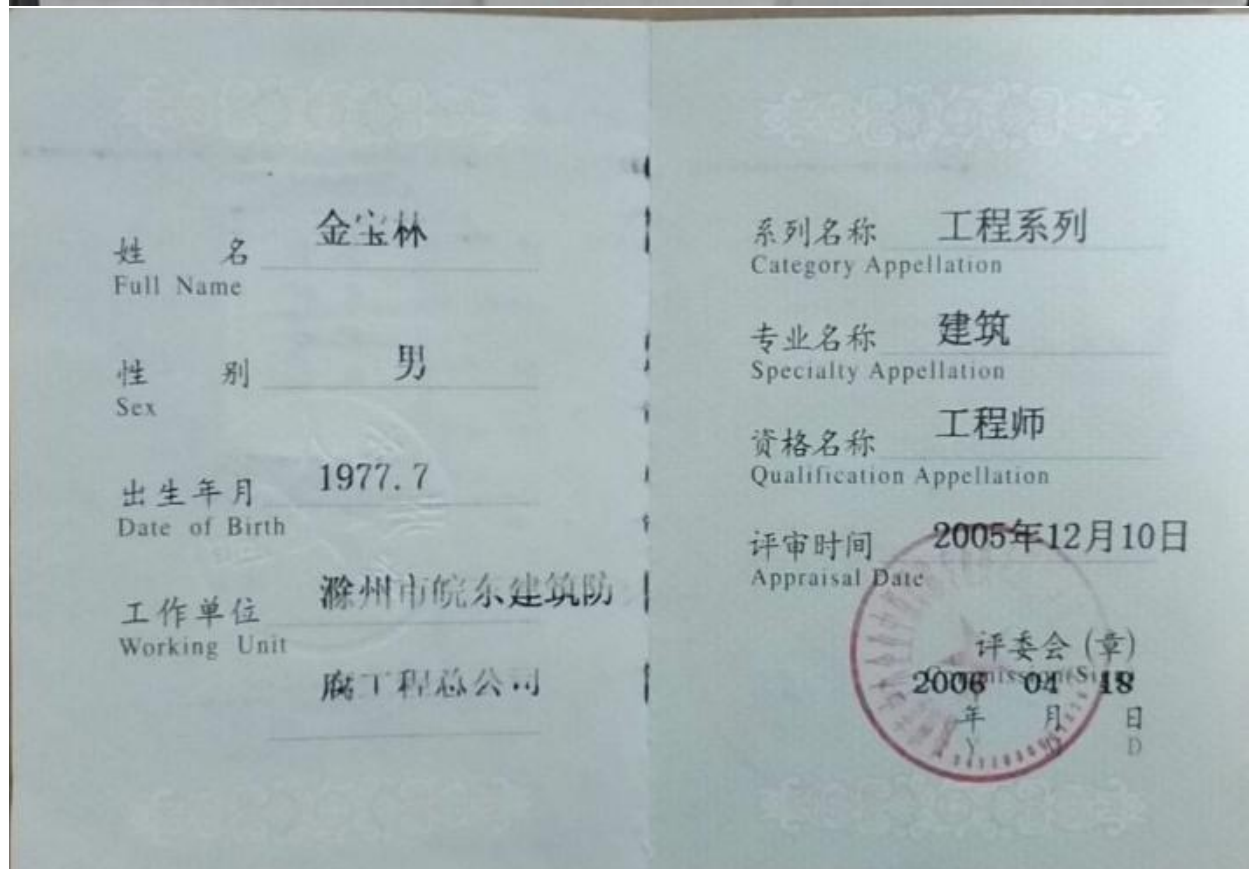 姓 名 金宝林
Full Name
性 别 男
Sex
出生年月 1977.7
Date of Birth
工作单位 滁州市皖东建筑防
Working Unit
腐工程总公司
系列名称 工程系列
Category Appellation
专业名称 建筑
Specialty Appellation
资格名称 工程师
Qualification Appellation
评审时间 2005年12月10日
Appraisal Date
评委会(章)
2006 04 18
年 月 日
Y D